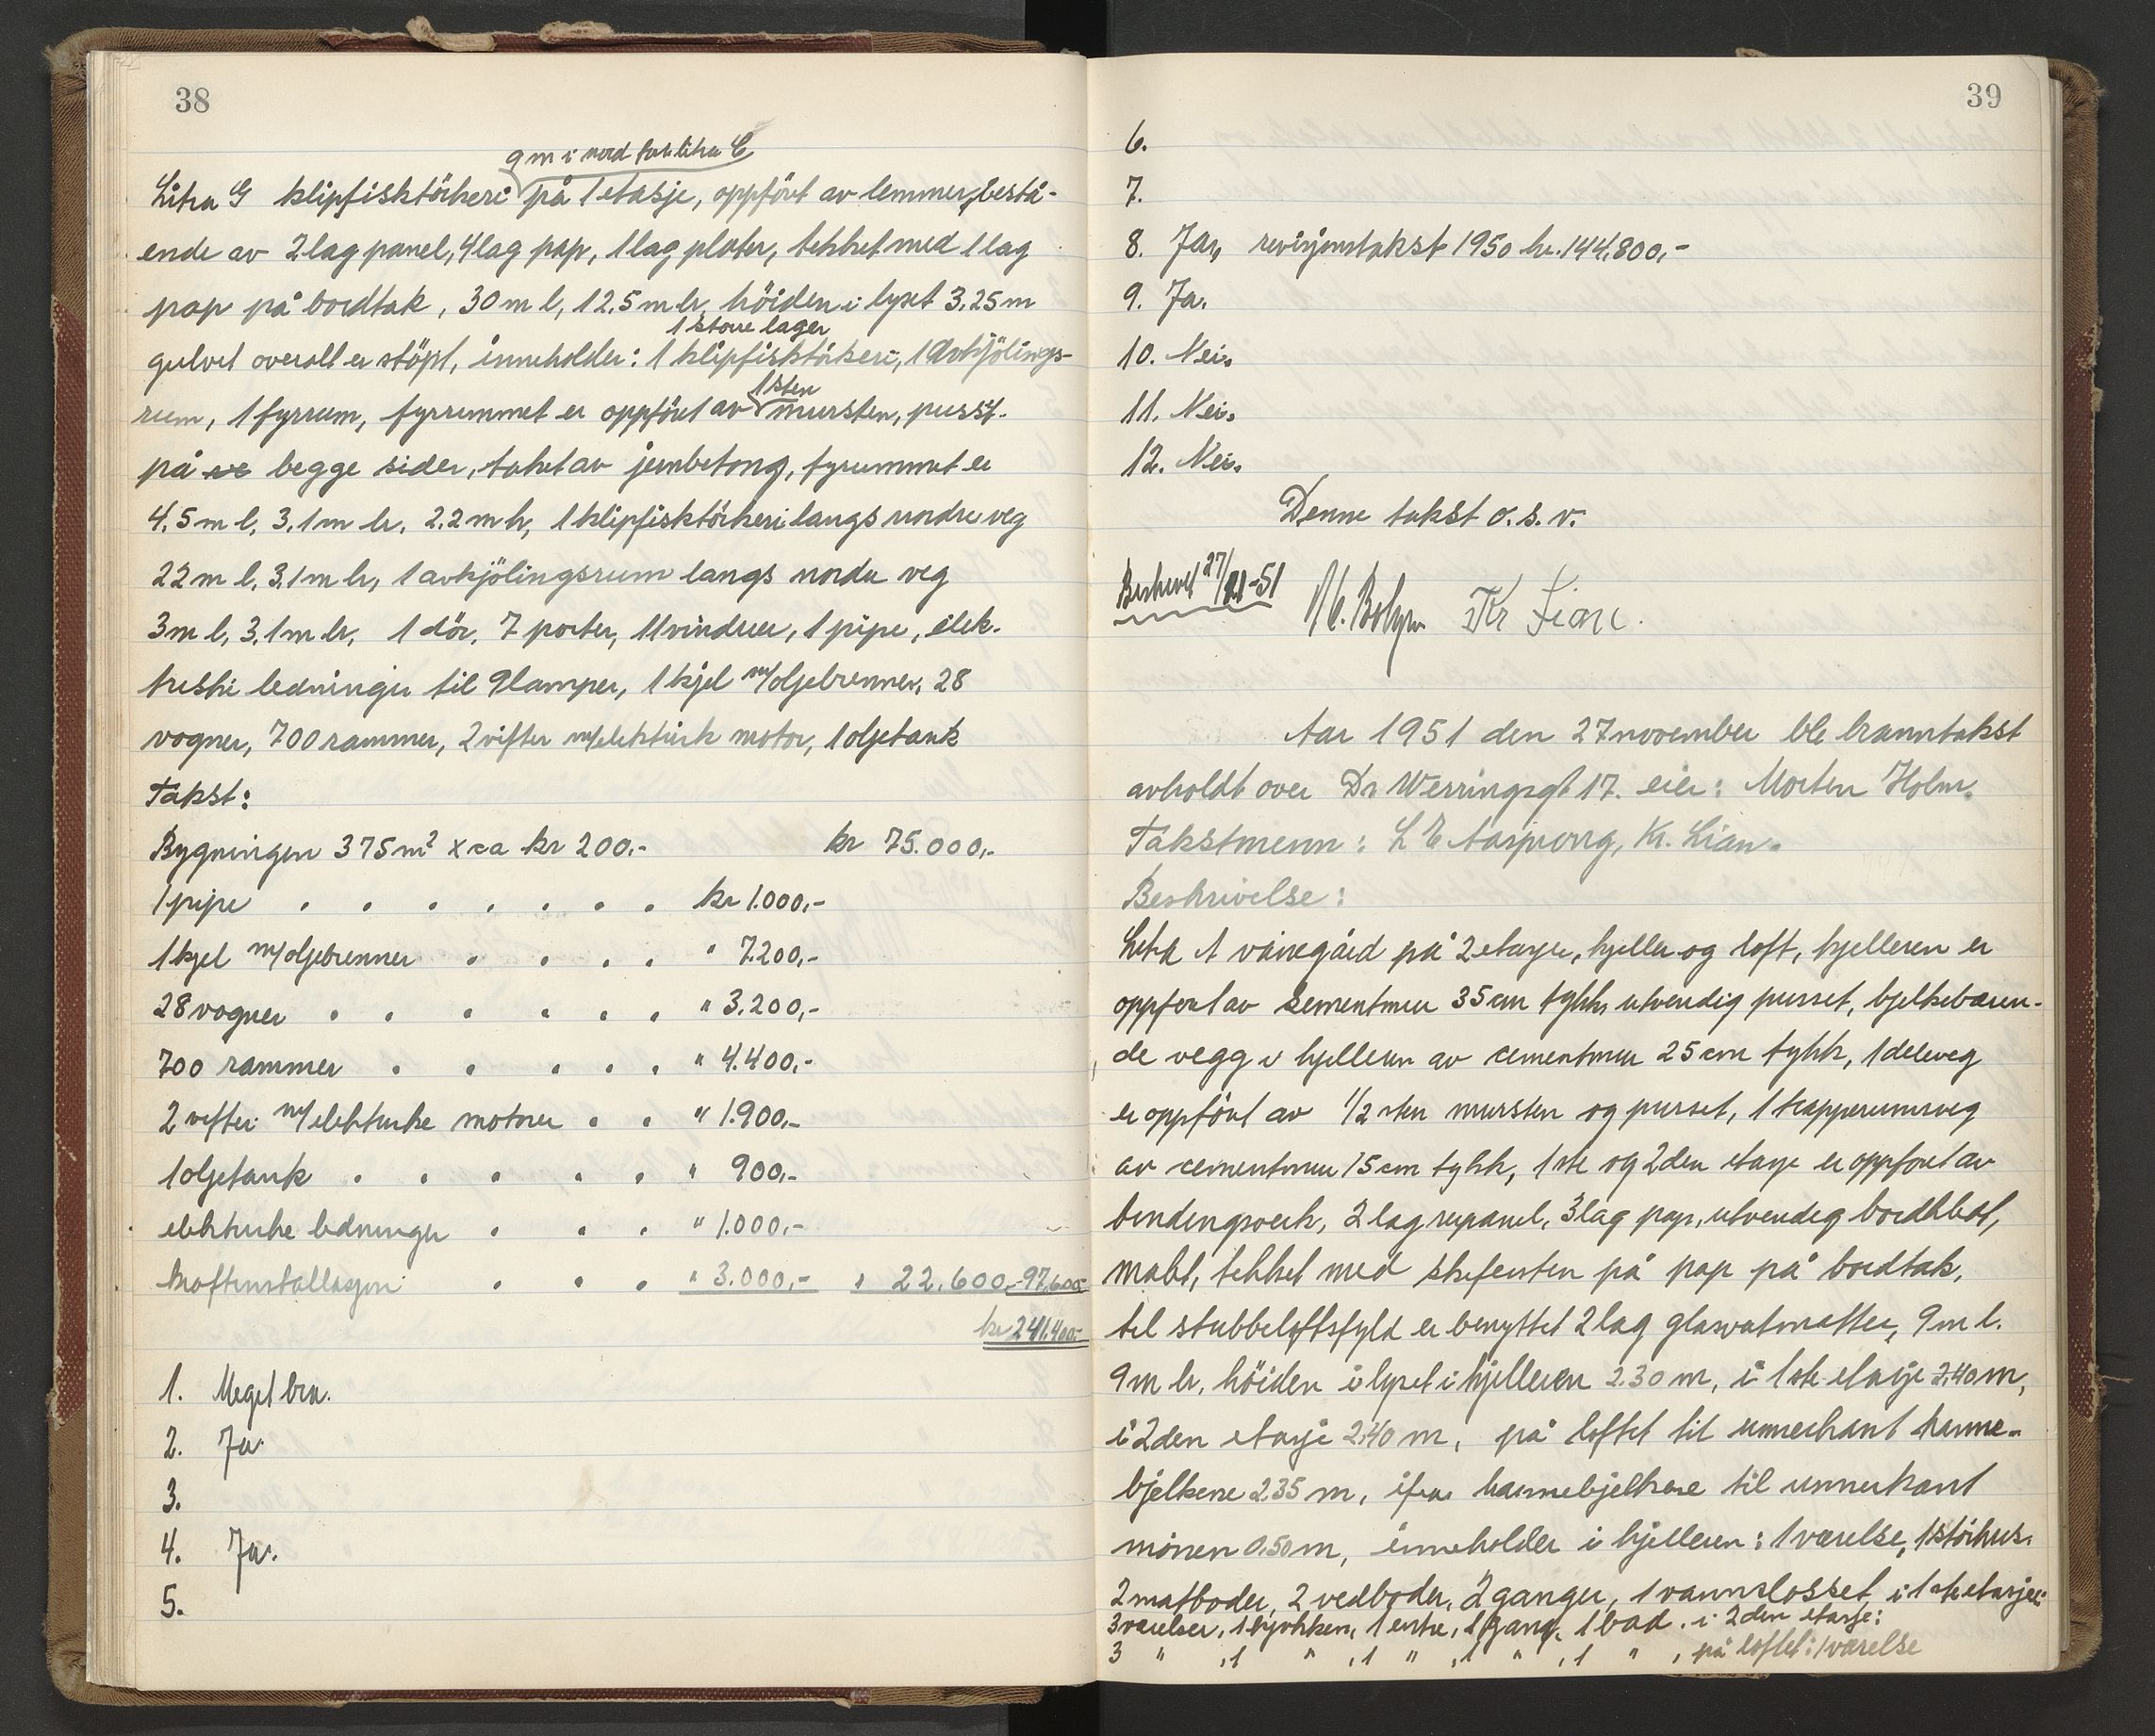 38
9 m i nord for litra C
Litra G klipfisktörkeri på 1 etasje, oppfört av lemmer, bestå-
ende av 2 lag panel, 4 lag pap, 1 lag plater, tekket med 1 lag
pap på bordtak, 30 m l, 12.5 m br, höiden i lyset 3.25 m
1 större lager
gulvet overalt er stöpt, inneholder: 1 klipfisktörkeri, 1 Avkjölings-
1 sten
rum, 1 fyrrum, fyrrummet er oppfört av mursten, pusst.
på begge sider, taket av jernbetong, fyrummet er
4.5 m l, 3.1 m br, 2.2 m h, 1 klipfisktörkeri langs nordre veg
22 m l, 3.1 m br, 1 avkjölingsrum langs nordre veg
3 m l, 3.1 m br, 1 dör, 7 porter, 11 vinduer, 1 pipe, elek-
triske ledninger til 9 lamper, 1 kjel m/oljebrenner, 28
vogner, 700 rammer, 2 vifter m/elektrisk motor, 1 oljetank
Takst:
Bygningen 375 m² x ca kr 200.- kr 75.000,-
1 pipe . . . . . . . kr 1.000,-
1 kjel m/oljebrenner . . . . " 7.200,-
28 vogner . . . . . . " 3.200,-
700 rammer . . . . . " 4.400,-
2 vifter m/elektriske motorer . . " 1.900,-
1 oljetank . . . . . " 900,-
elektriske ledninger . . . " 1.000,-
Kraftinstallasjon . . . " 3.000,- " 22.600,- 97.600,-
kr 241.400,-
1. Meget bra.
2. Ja.
3.
4. Ja.
5.
39
6.
7.
8. Ja, revisjonstakst 1950 kr. 144.800,-
9. Ja.
10. Nei.
11. Nei.
12. Nei.
Denne takst o.s.v.
Beskrevet 27/11-51
Kr Lian.
Aar 1951 den 27 november ble branntakst
avholdt over Dr Werringsgt 17. eier: Morten Holm.
Takstmenn: L E Aasprong, Kr. Lian.
Beskrivelse:
Litra A våningård på 2 etasjer, kjeller og loft, kjelleren er
oppført av sementmur 35 cm tykk, utvendig pusset, bjelkebæren-
de vegg i kjelleren av cementmur 25 cm tykk, 1 deleveg
er oppfört av 1/2 sten mursten og pusset, 1 trapperumsveg
av cementmur 15 cm tykk, 1ste og 2den etasje er oppført av
bindingsverk, 2 lag rupanel, 3 lag pap, utvendig bordkledt,
malt, tekket med skifersten på pap på bordtak,
til stubbeloftsfyld er benyttet 2 lag glasvatmatter, 9 m l.
9 m br, höiden i lyset i kjelleren 2.30 m, i 1ste etasje 2.40 m,
i 2den etasje 2.40 m, på loftet til unnerkant hanne-
bjelkene 2.35 m, ifra hannebjelkene til unnerkant
mönen 0.50 m, inneholder i kjelleren: 1 værelse, 1 störhus.
2 matboder, 2 vedboder, 2 ganger, 1 vannklosset, i 1ste etasje:
3 værelser, 1 kjøkken, 1 entre, 1 gang, 1 bad. i 2den etasje:
3 " , 1 " , 1 " , 1 " , 1 " , på loftet: 1 værelse